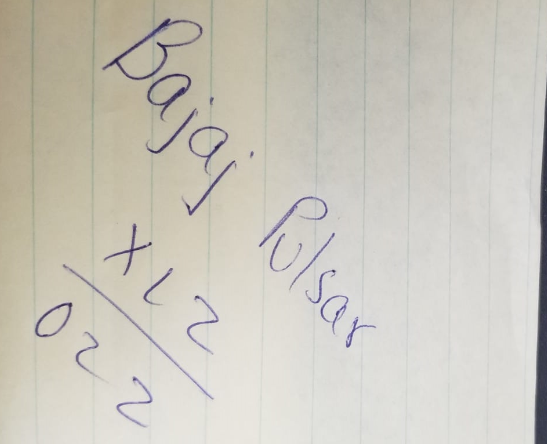 Bajaj Pulsar
022